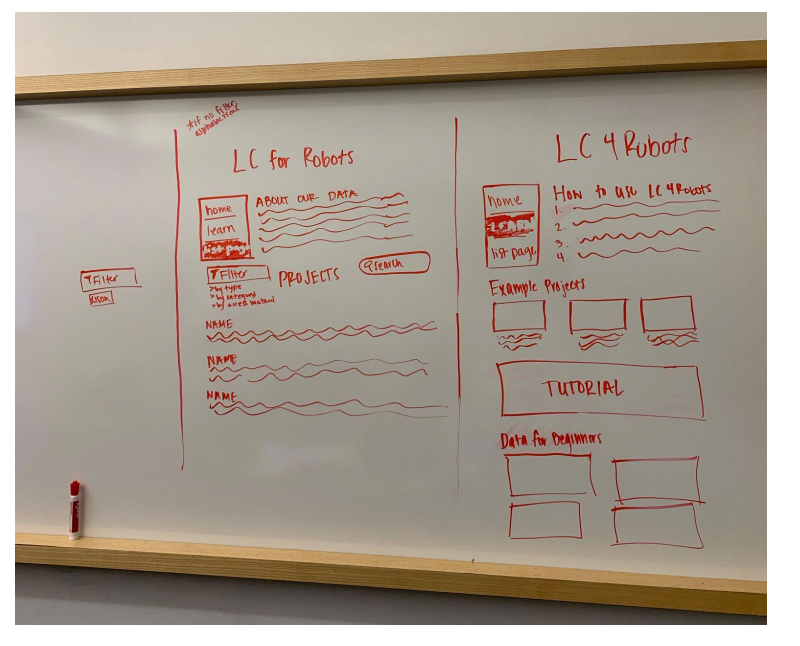 *if no filter
alphabetical
LC for Robots
home
learn
list page
ABOUT OUR DATA
Filter
>by type
>by category
>by access method
PROJECTS
search
NAME
NAME
NAME
Filter
LC 4 Robots
home
LEARN
list page
How to use LC 4 Robots
1.
2.
3.
4.
Example Projects
TUTORIAL
Data for Beginners